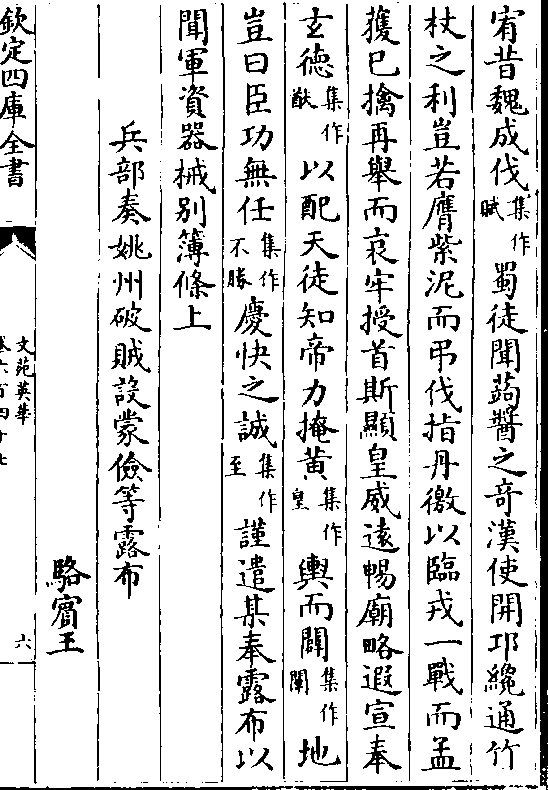 宥昔魏成伐集作賦蜀徒聞蒟醬之竒漢使開邛纔通竹
杖之利豈若膺紫泥而弔伐指丹徼以臨戎一戰而孟
獲已擒再舉而哀牢授首斯顯皇威逺暢廟略遐宣奉
玄德集作猷以配天徒知帝力掩黄集作皇輿而闢集作闡地
豈曰臣功無任集作不勝慶快之誠集作至謹遣某奉露布以
聞軍資器械别簿條上
兵部奏姚州破賊設蒙儉等露布
駱賓王
欽定四庫全書
文苑英華
卷六百四十七
六